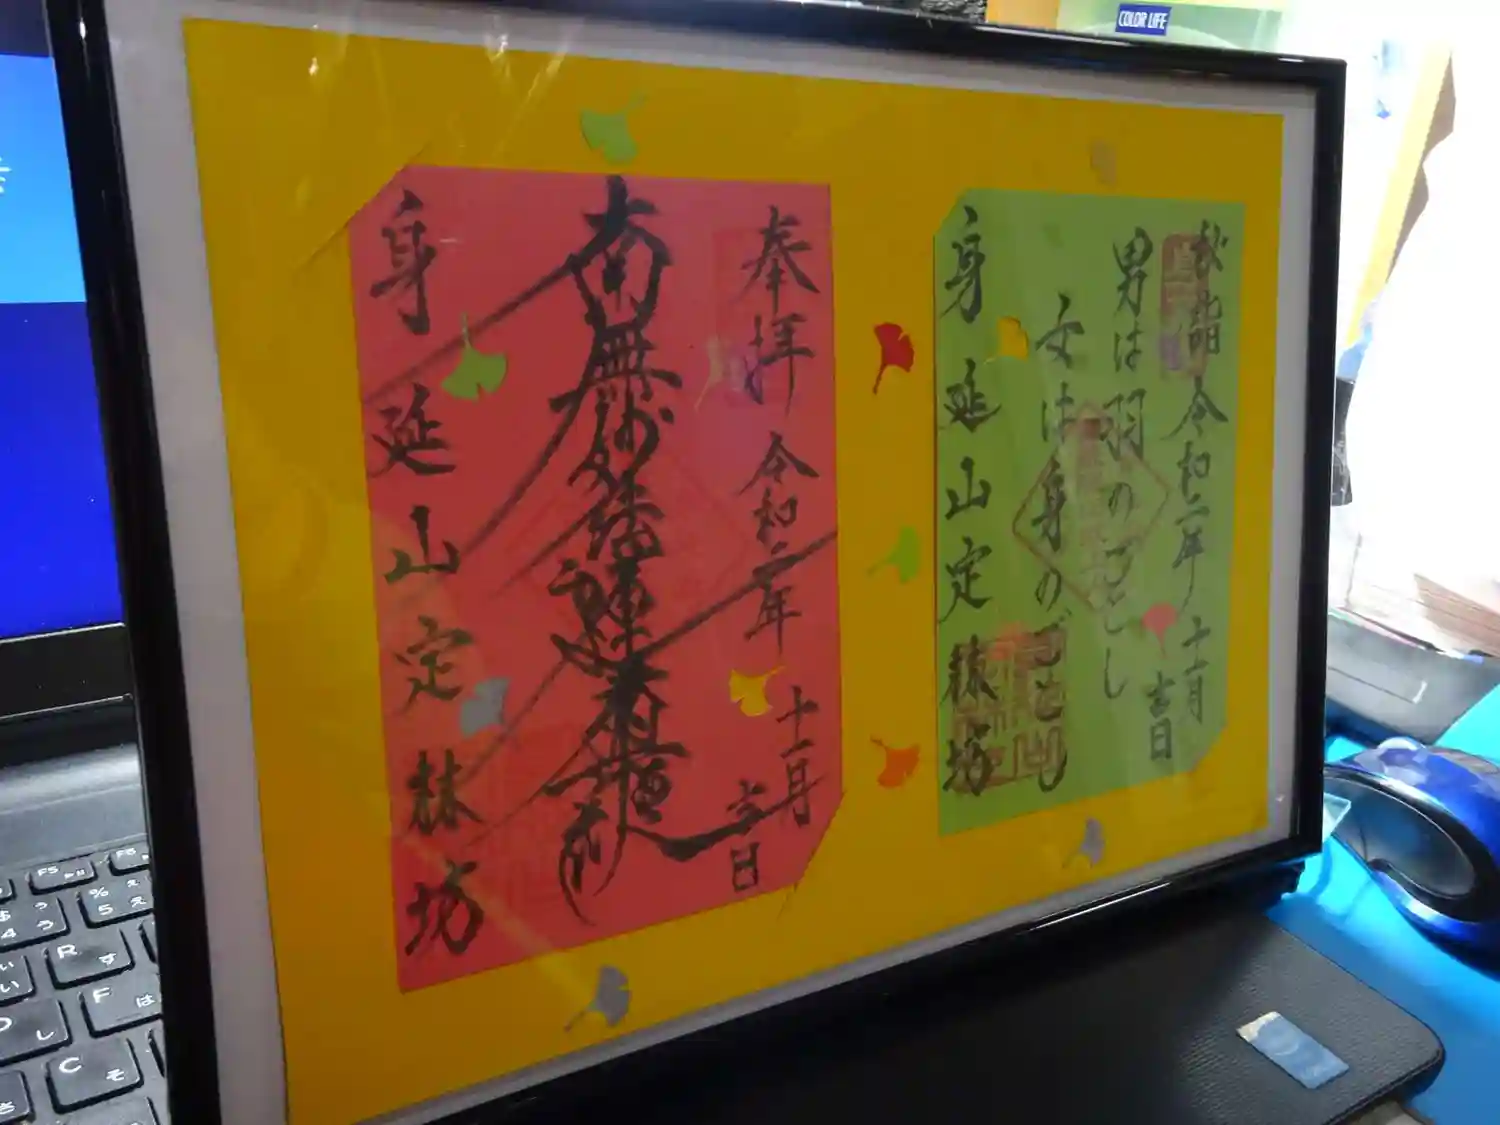 COLOR LIFE
秋詣 令和二年十一月
吉日
男は羽のごとし
女は身のごとし
身延山定林坊
奉拝 令和二年 十一月
吉日
南無妙法蓮華経
身延山定林坊
F5
F6
% え
5 え
4 う
R す
F は
C そ